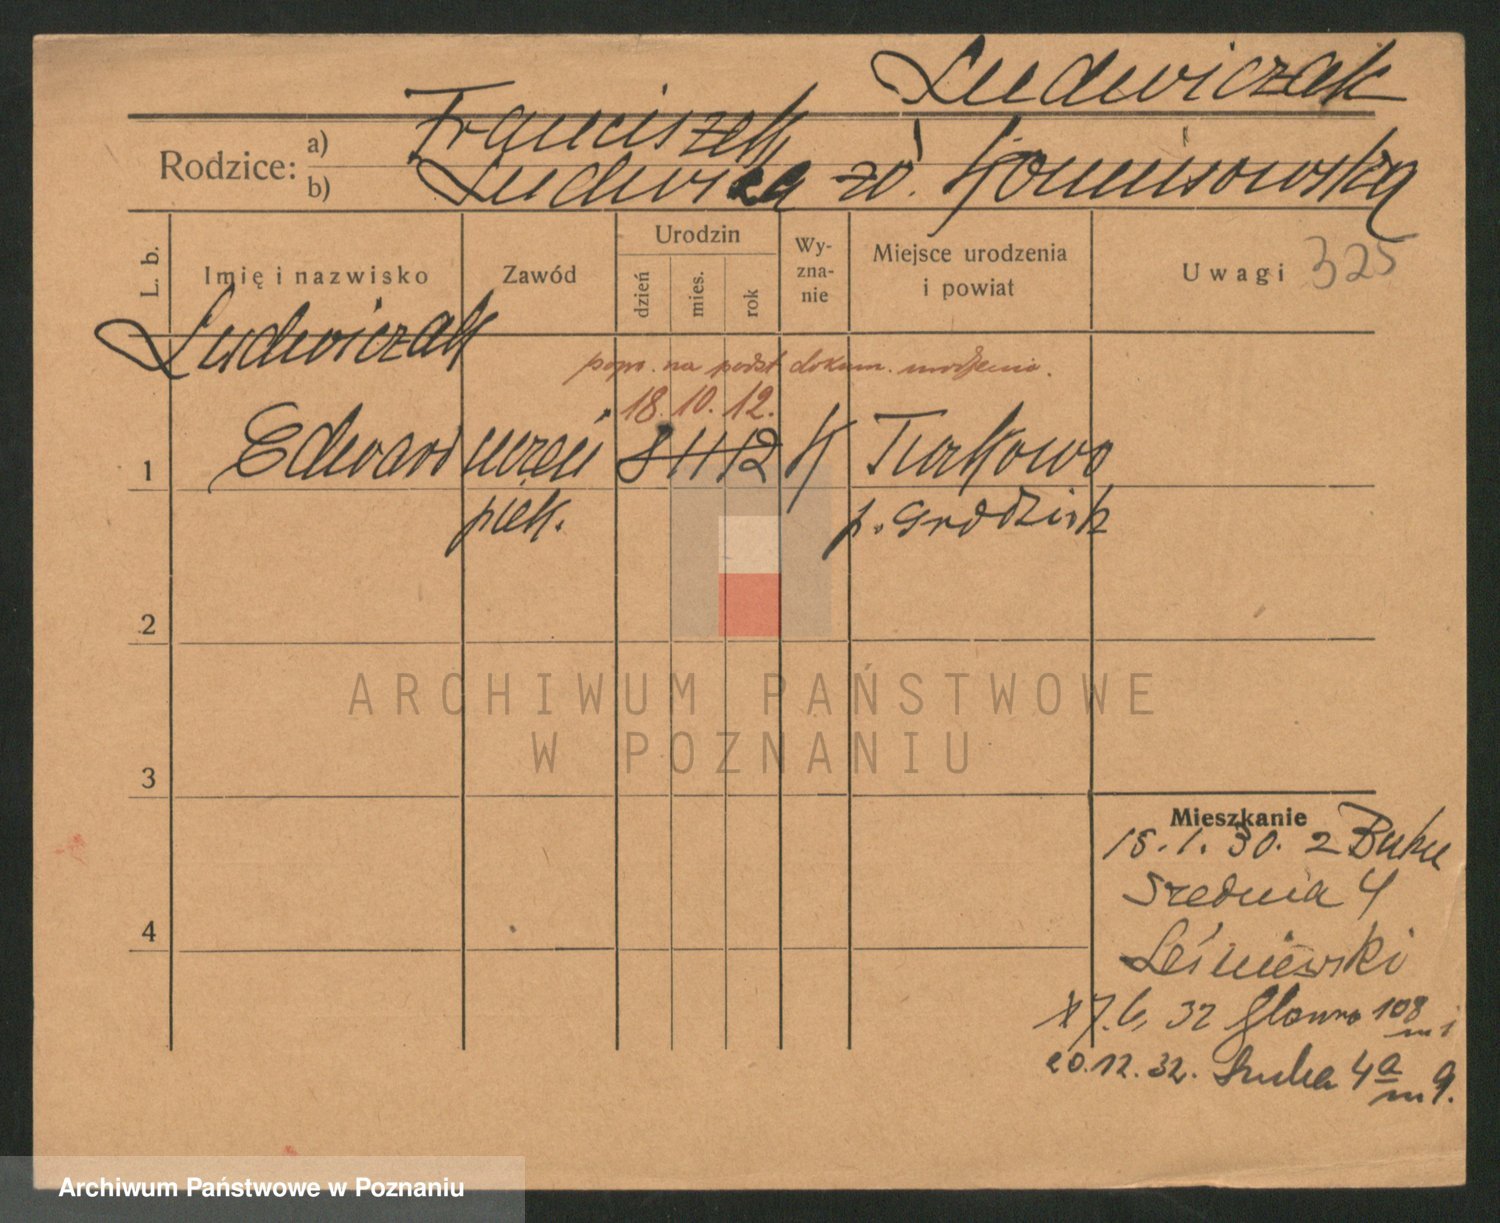 Ludwiczak
Rodzice:
a) Franciszek
b) Ludwika zd.
L. b.
Imię i nazwisko
Zawód
Urodzin
dzień
mies.
rok
Wy-
zna-
nie
Miejsce urodzenia
i powiat
Uwagi 325
Ludwiczak
popr. na podst. dokum. urodzenia.
18. 10. 12.
1 Edward uczeń 8 11 12 K Turkowo
piek. p. Grodzisk
2
3
4
ARCHIWUM PAŃSTWOWE
W POZNANIU
Mieszkanie
15. 1. 30. z Buku
Średnia 4
Leśniewski
17. 6. 32 108
m 1
20. 12. 32. 4a
m 9.
Archiwum Państwowe w Poznaniu